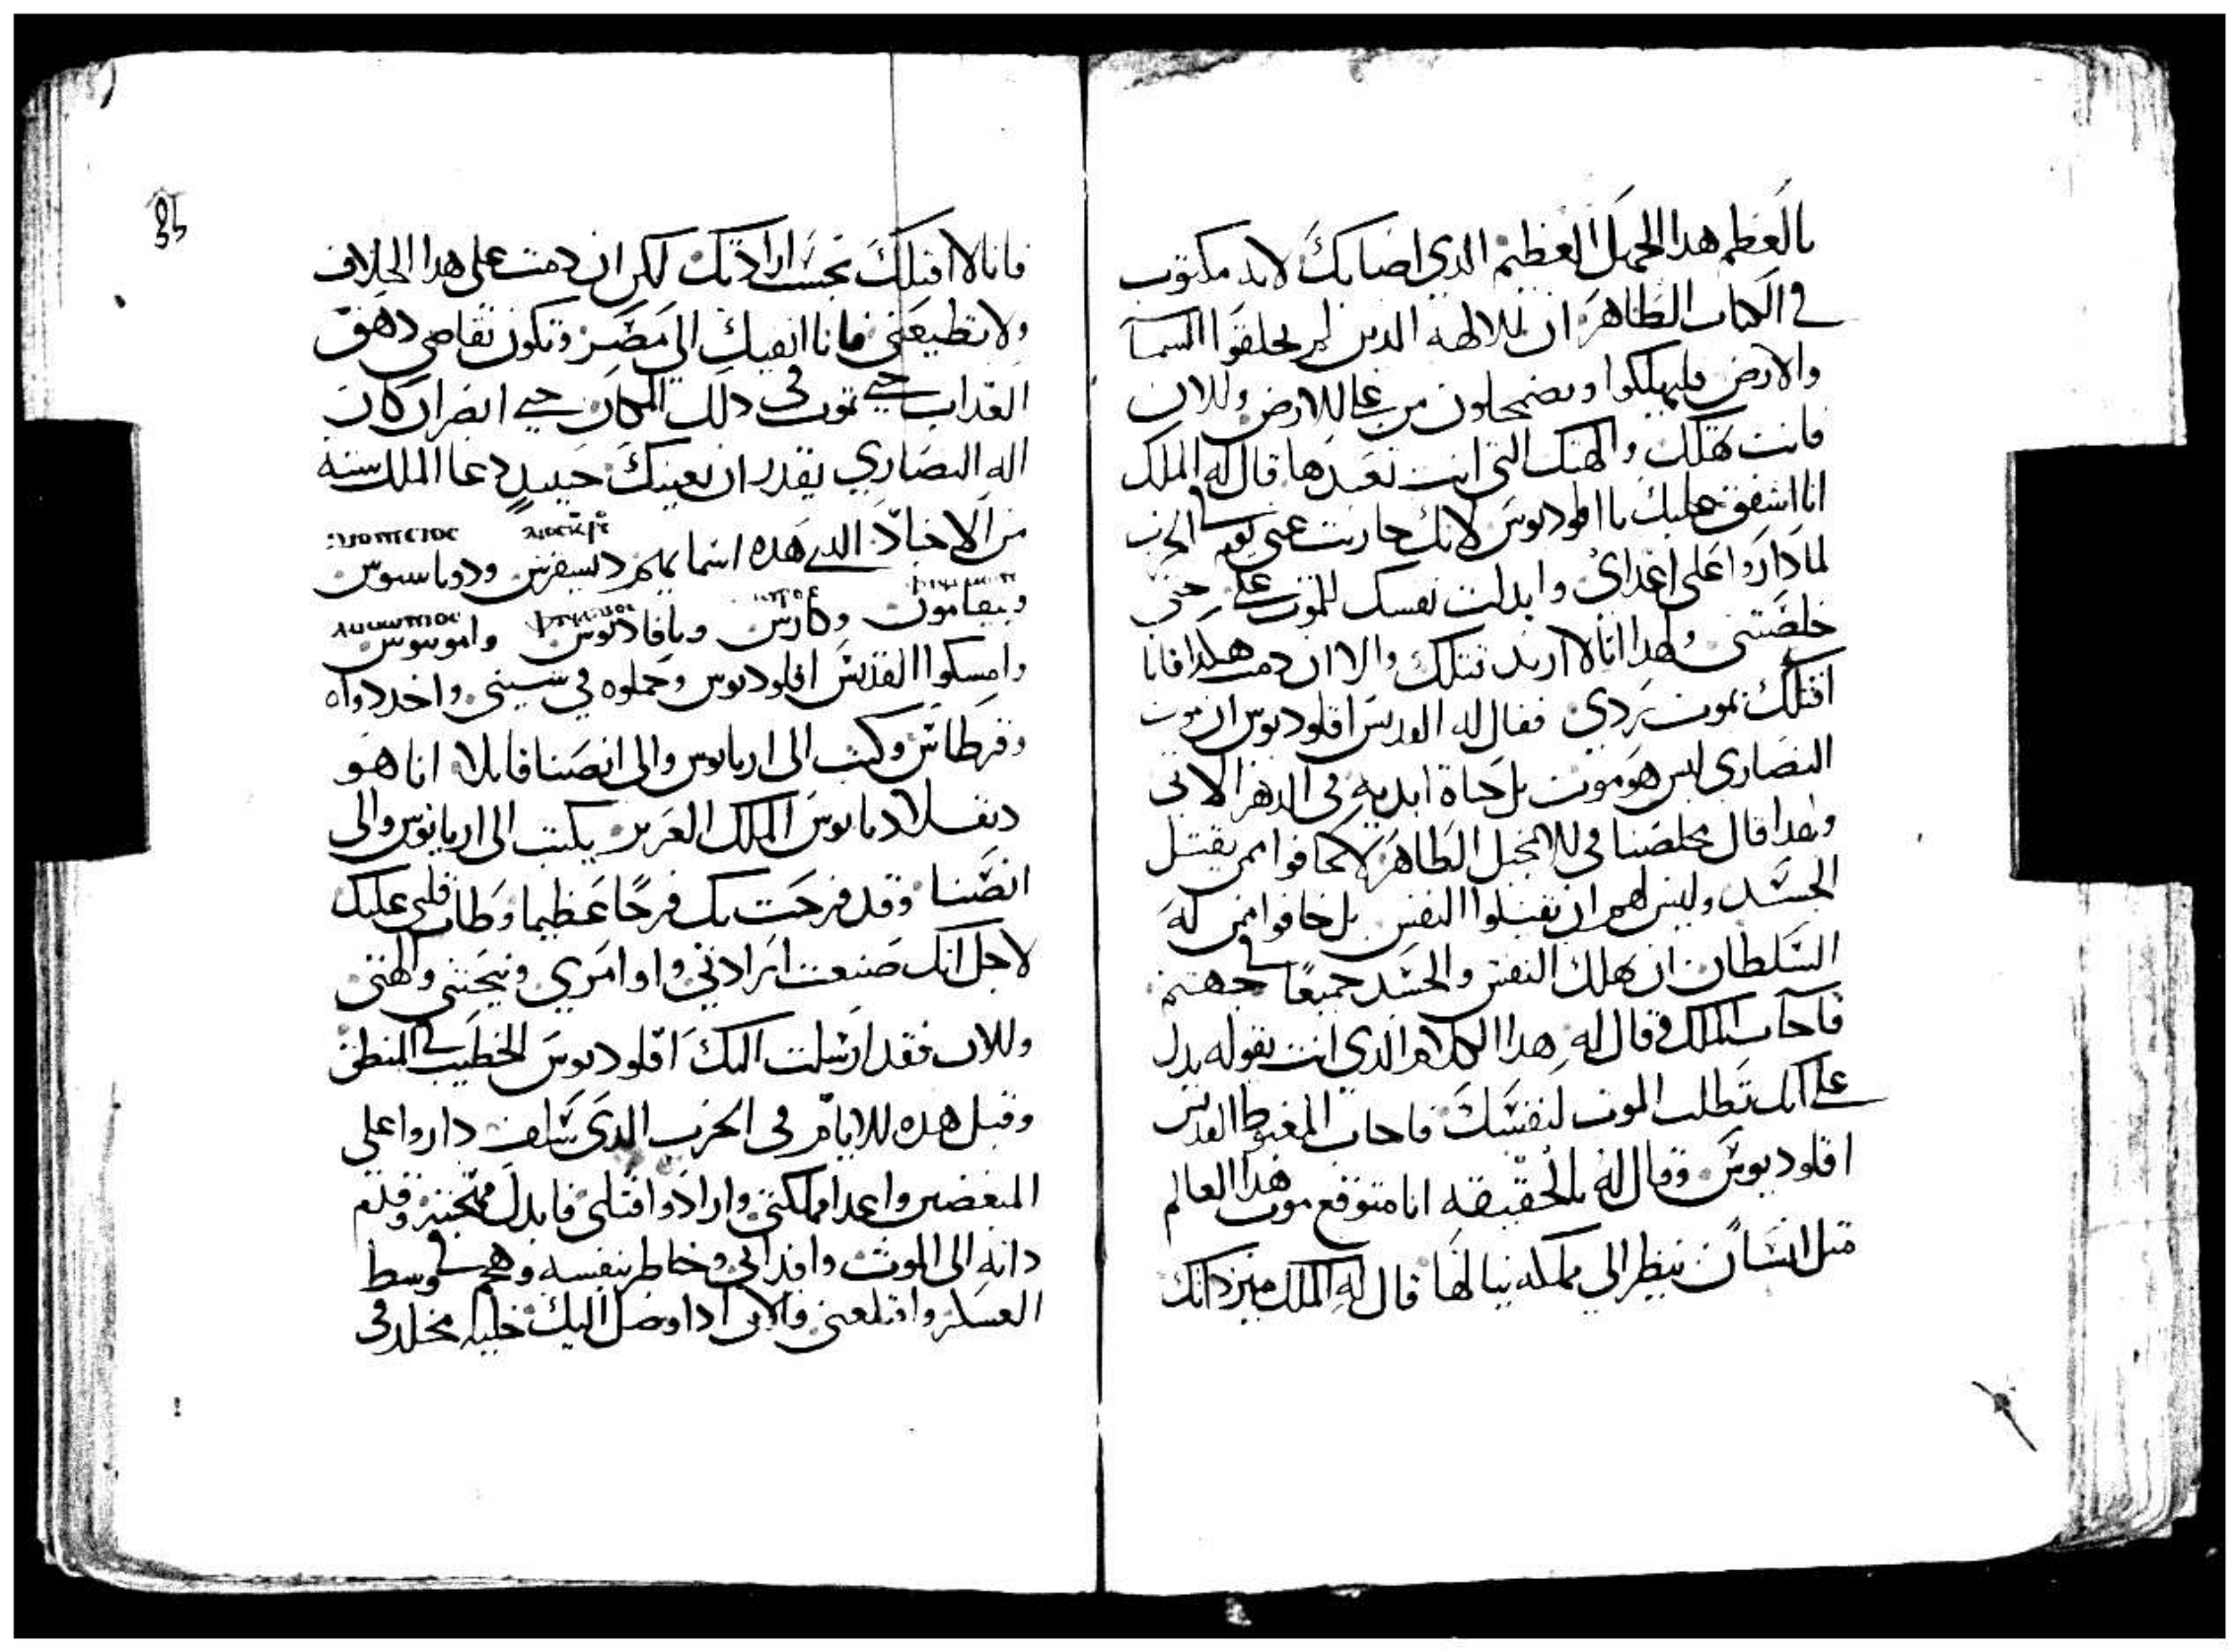 يالعظم هدا الجهل العظيم الدي اصابك لانه مكتوب
في الكتاب الطاهر ان الالهه الدين لم يخلقوا السما
والارض فليهلكوا ويضمحلون من علي الارض والان
فانت تهلك والهتك التي انت تعبدها قال له الملك
انا اشفق عليك يا اقلوديوس لانك حاربت عني يوم الحرب
لما داروا علي اعداي وابدلت نفسك للموت عني حتي
خلصتني ولهدا انا لا اريد قتلك والا ان دمت هكدا فانا
اقتلك بموت ردي فقال له القديس اقلوديوس ان موت
النصاري ليس هو موت بل حياة ابديه في الدهر الاتي
وهدا قال مخلصنا في الانجيل الطاهر لا تخافوا ممن يقتل
الجسد وليس لهم ان يقتلوا النفس بل خافوا ممن له
السلطان ان يهلك النفس والجسد جميعًا في جهنم
فاجاب الملك وقال له هدا الكلام الدي انت تقوله يدل
علي انك تطلب الموت لنفسك فاجاب المغبوط القديس
اقلوديوس وقال له بالحقيقه انا متوقع موت هدا العالم
متل انسان ينظر الي مملكه ينالها قال له الملك
فانا لا اقتلك بحسب ارادتك لكن ان دمت علي هدا الخلاف
ولا تطيعني فانا انفيك الي مصر وتكون تقاصي
العداب حتي تموت في دلك المكان حتي ابصر ان كان
اله النصاري يقدر ان يعينك حينيدٍ دعا الملك سته
من الاجناد الدي هده اسمايهم
وامسكوا القديس اقلوديوس وحملوه في سيني واخد دواه
وقرطاس وكتب الي اريانوس والي انصنا قايلا انا هو
دقلاديانوس الملك العزيز يكتب الي اريانوس والي
انصنا وقد فرحت بك فرحًا عظيما وطاب قلبي عليك
لاجل انك صنعت ارادتي واوامري والهتي
والان فقد ارسلت اليك اقلوديوس الخطيب في المنطق
وقبل هده الايام في الحرب الدي سلف داروا علي
المبغضين واعدا مملكتي وارادوا قتلي فابدل وقدم
داته الي الموت وافداني وخاطر بنفسه وهجم في وسط
العسكر واقلعني فالان ادا وصل اليك